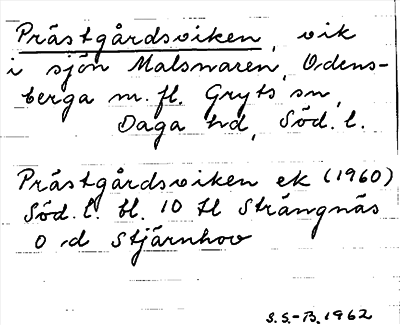 Prästgårdsviken, vik
i sjön Malsnaren, Odens-
berga m. fl. Gryts sn,
Daga hd, Söd. l.
Prästgårdsviken ek (1960)
Söd. l. bl. 10 tl Strängnäs
O d Stjärnhov
S.S.-B. 1962